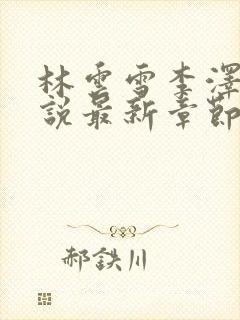 林雲雪李澤
說最新章節
郝鉄川